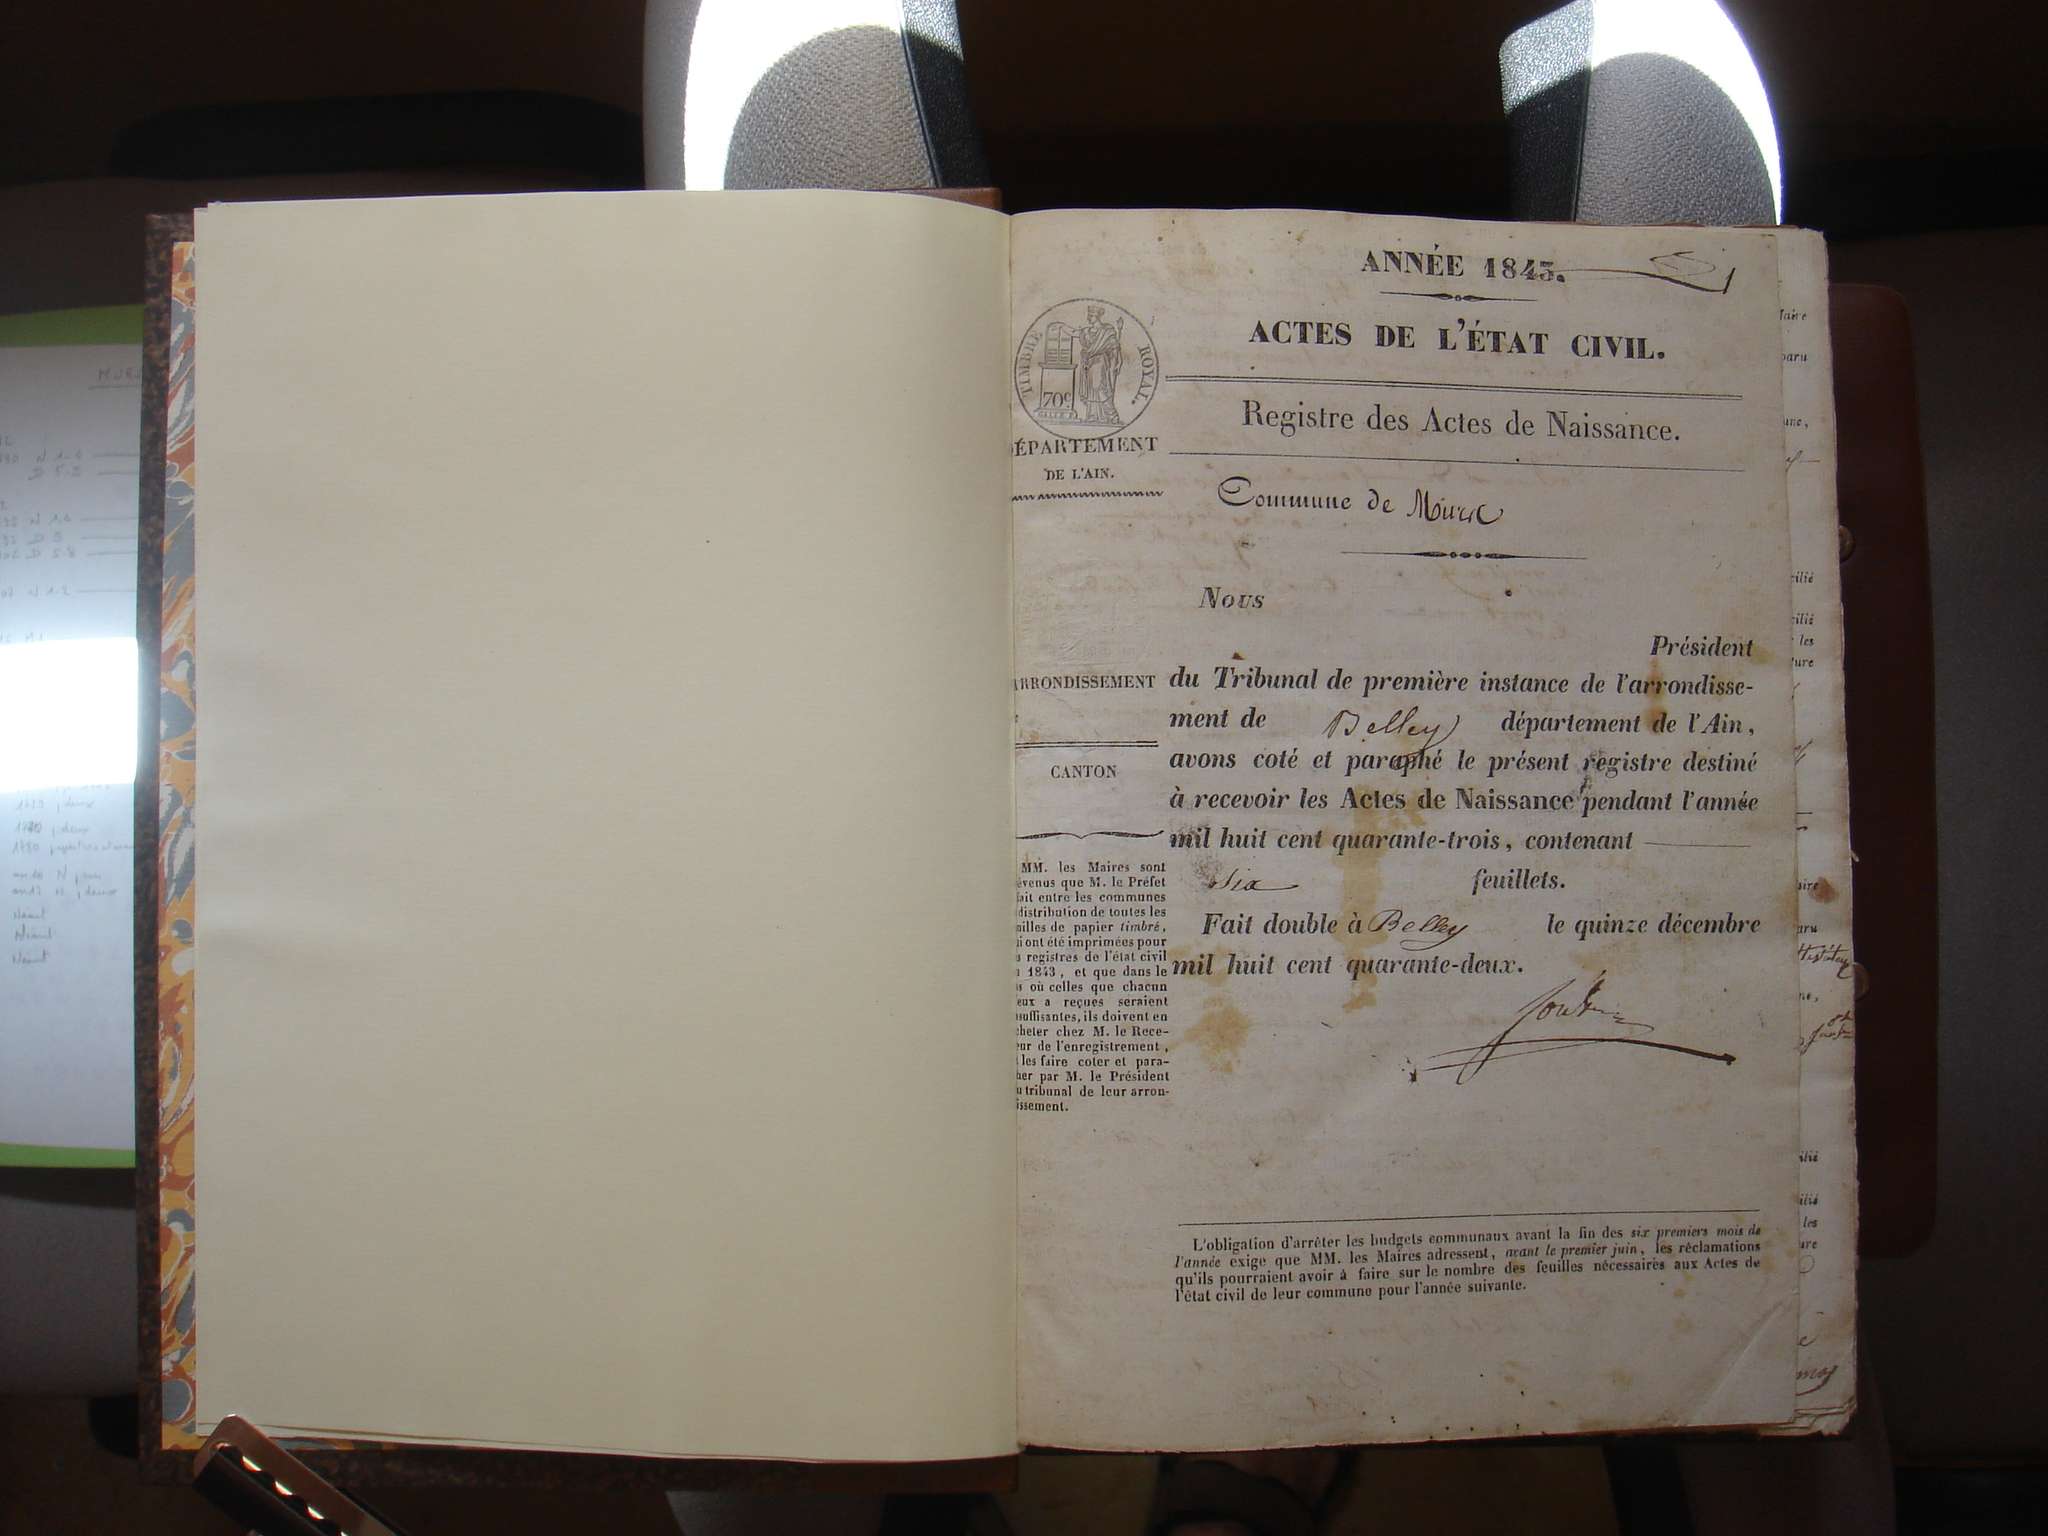 ANNÉE 1843.
1
ACTES DE L'ÉTAT CIVIL.
TIMBRE ROYAL.
70c
Registre des Actes de Naissance.
DÉPARTEMENT
DE L'AIN.
Commune de
Nous
Président
ARRONDISSEMENT
du Tribunal de première instance de l'arrondisse-
ment de Belley département de l'Ain,
avons coté et paraphé le présent registre destiné
CANTON
à recevoir les Actes de Naissance pendant l'année
mil huit cent quarante-trois, contenant
six feuillets.
Fait double à Belley le quinze décembre
mil huit cent quarante-deux.
MM. les Maires sont
évenus que M. le Préfet
fait entre les communes
distribution de toutes les
uilles de papier timbré,
i ont été imprimées pour
s registres de l'état civil
1843, et que dans le
s où celles que chacun
eux a reçues seraient
suffisantes, ils doivent en
cheter chez M. le Rece-
eur de l'enregistrement,
les faire coter et para-
her par M. le Président
u tribunal de leur arron-
issement.
L'obligation d'arrêter les budgets communaux avant la fin des six premiers mois de
l'année exige que MM. les Maires adressent, avant le premier juin, les réclamations
qu'ils pourraient avoir à faire sur le nombre des feuilles nécessaires aux Actes de
l'état civil de leur commune pour l'année suivante.